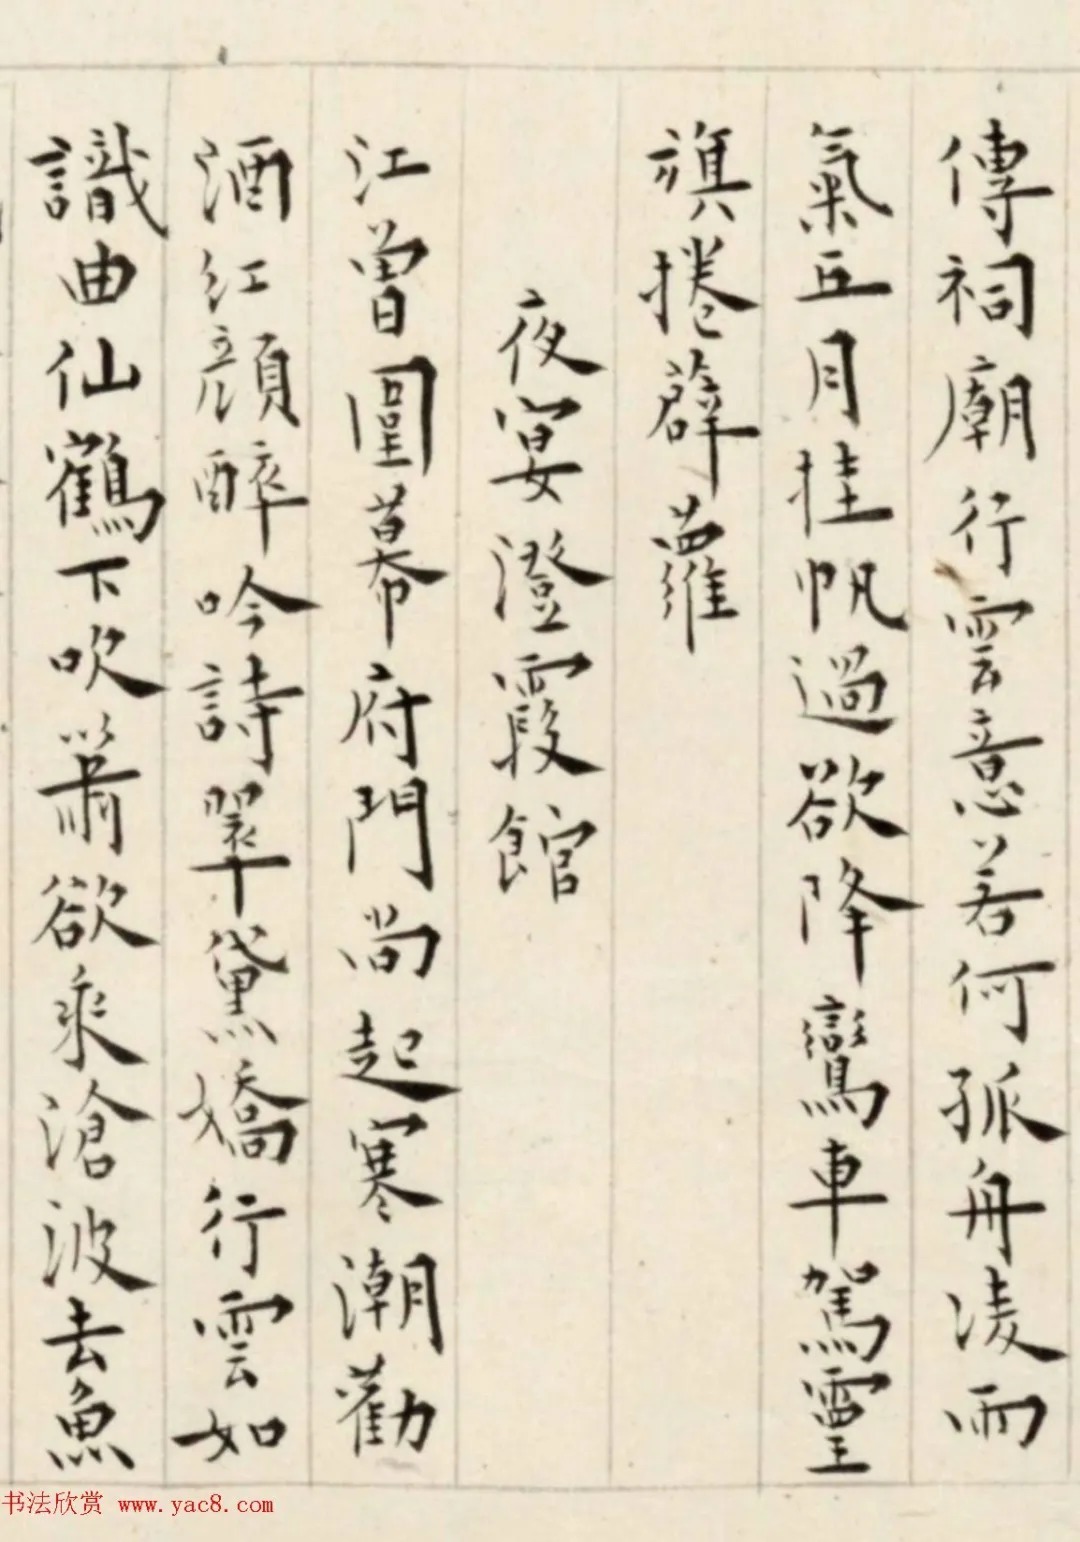 傳祠廟行雲意若何孤舟凌雨
氣五月挂帆過欲降鸞車駕靈
旗捲薜蘿
夜宴澄霞館
江曾圍幕府門尚起寒潮勸
酒紅顏醉吟詩翠黛嬌行雲如
識曲仙鶴下吹簫欲乘滄波去魚
书法欣赏 www.yac8.com